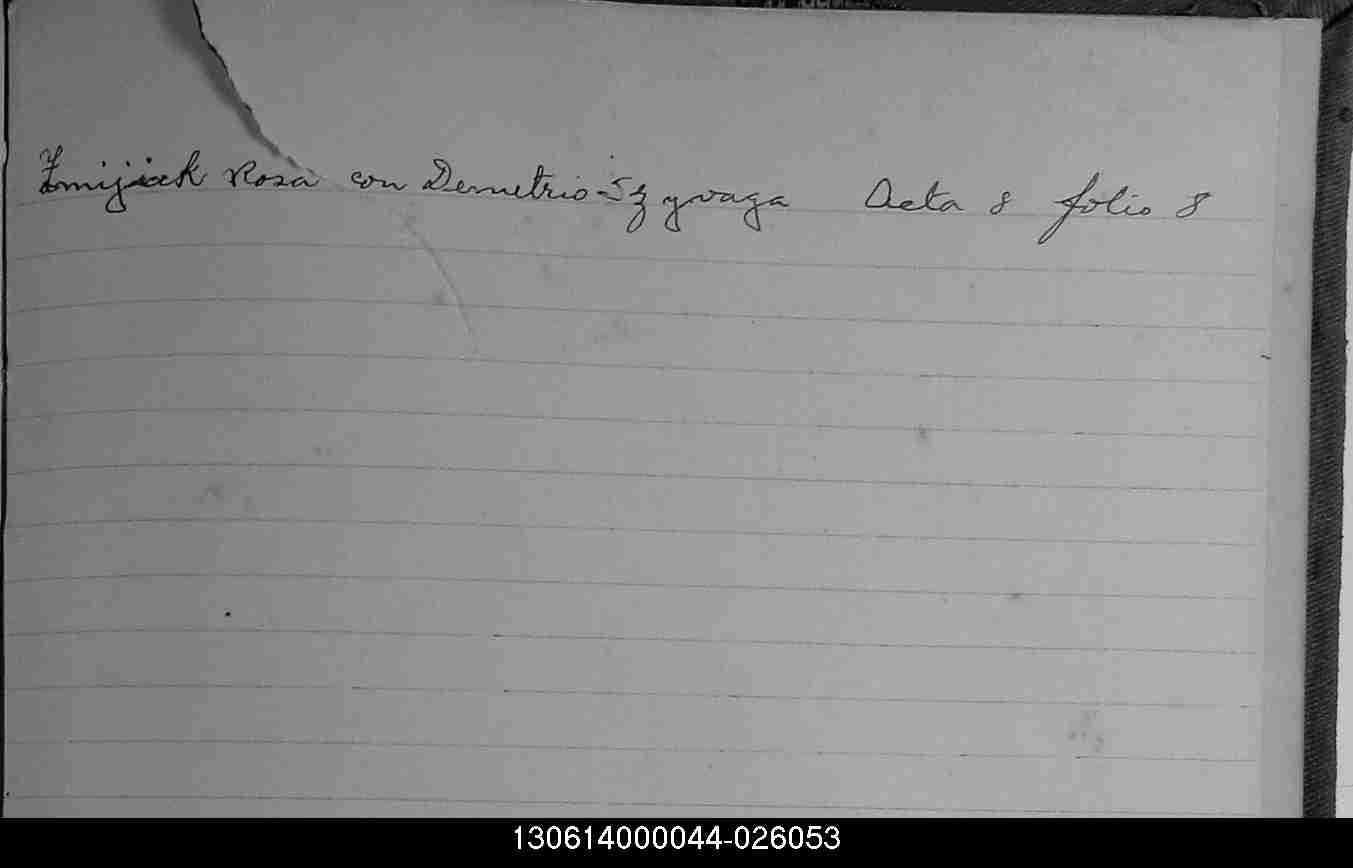 Zmijiak Rosa con Demetrio Szyvaga Acta 8 folio 8
130614000044-026053